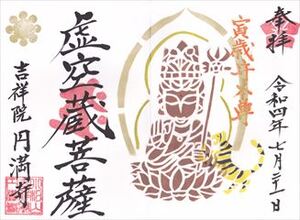 奉拝
令和四年七月二十一日
寅歳守本尊
虚空蔵菩薩
吉祥院 円満寺